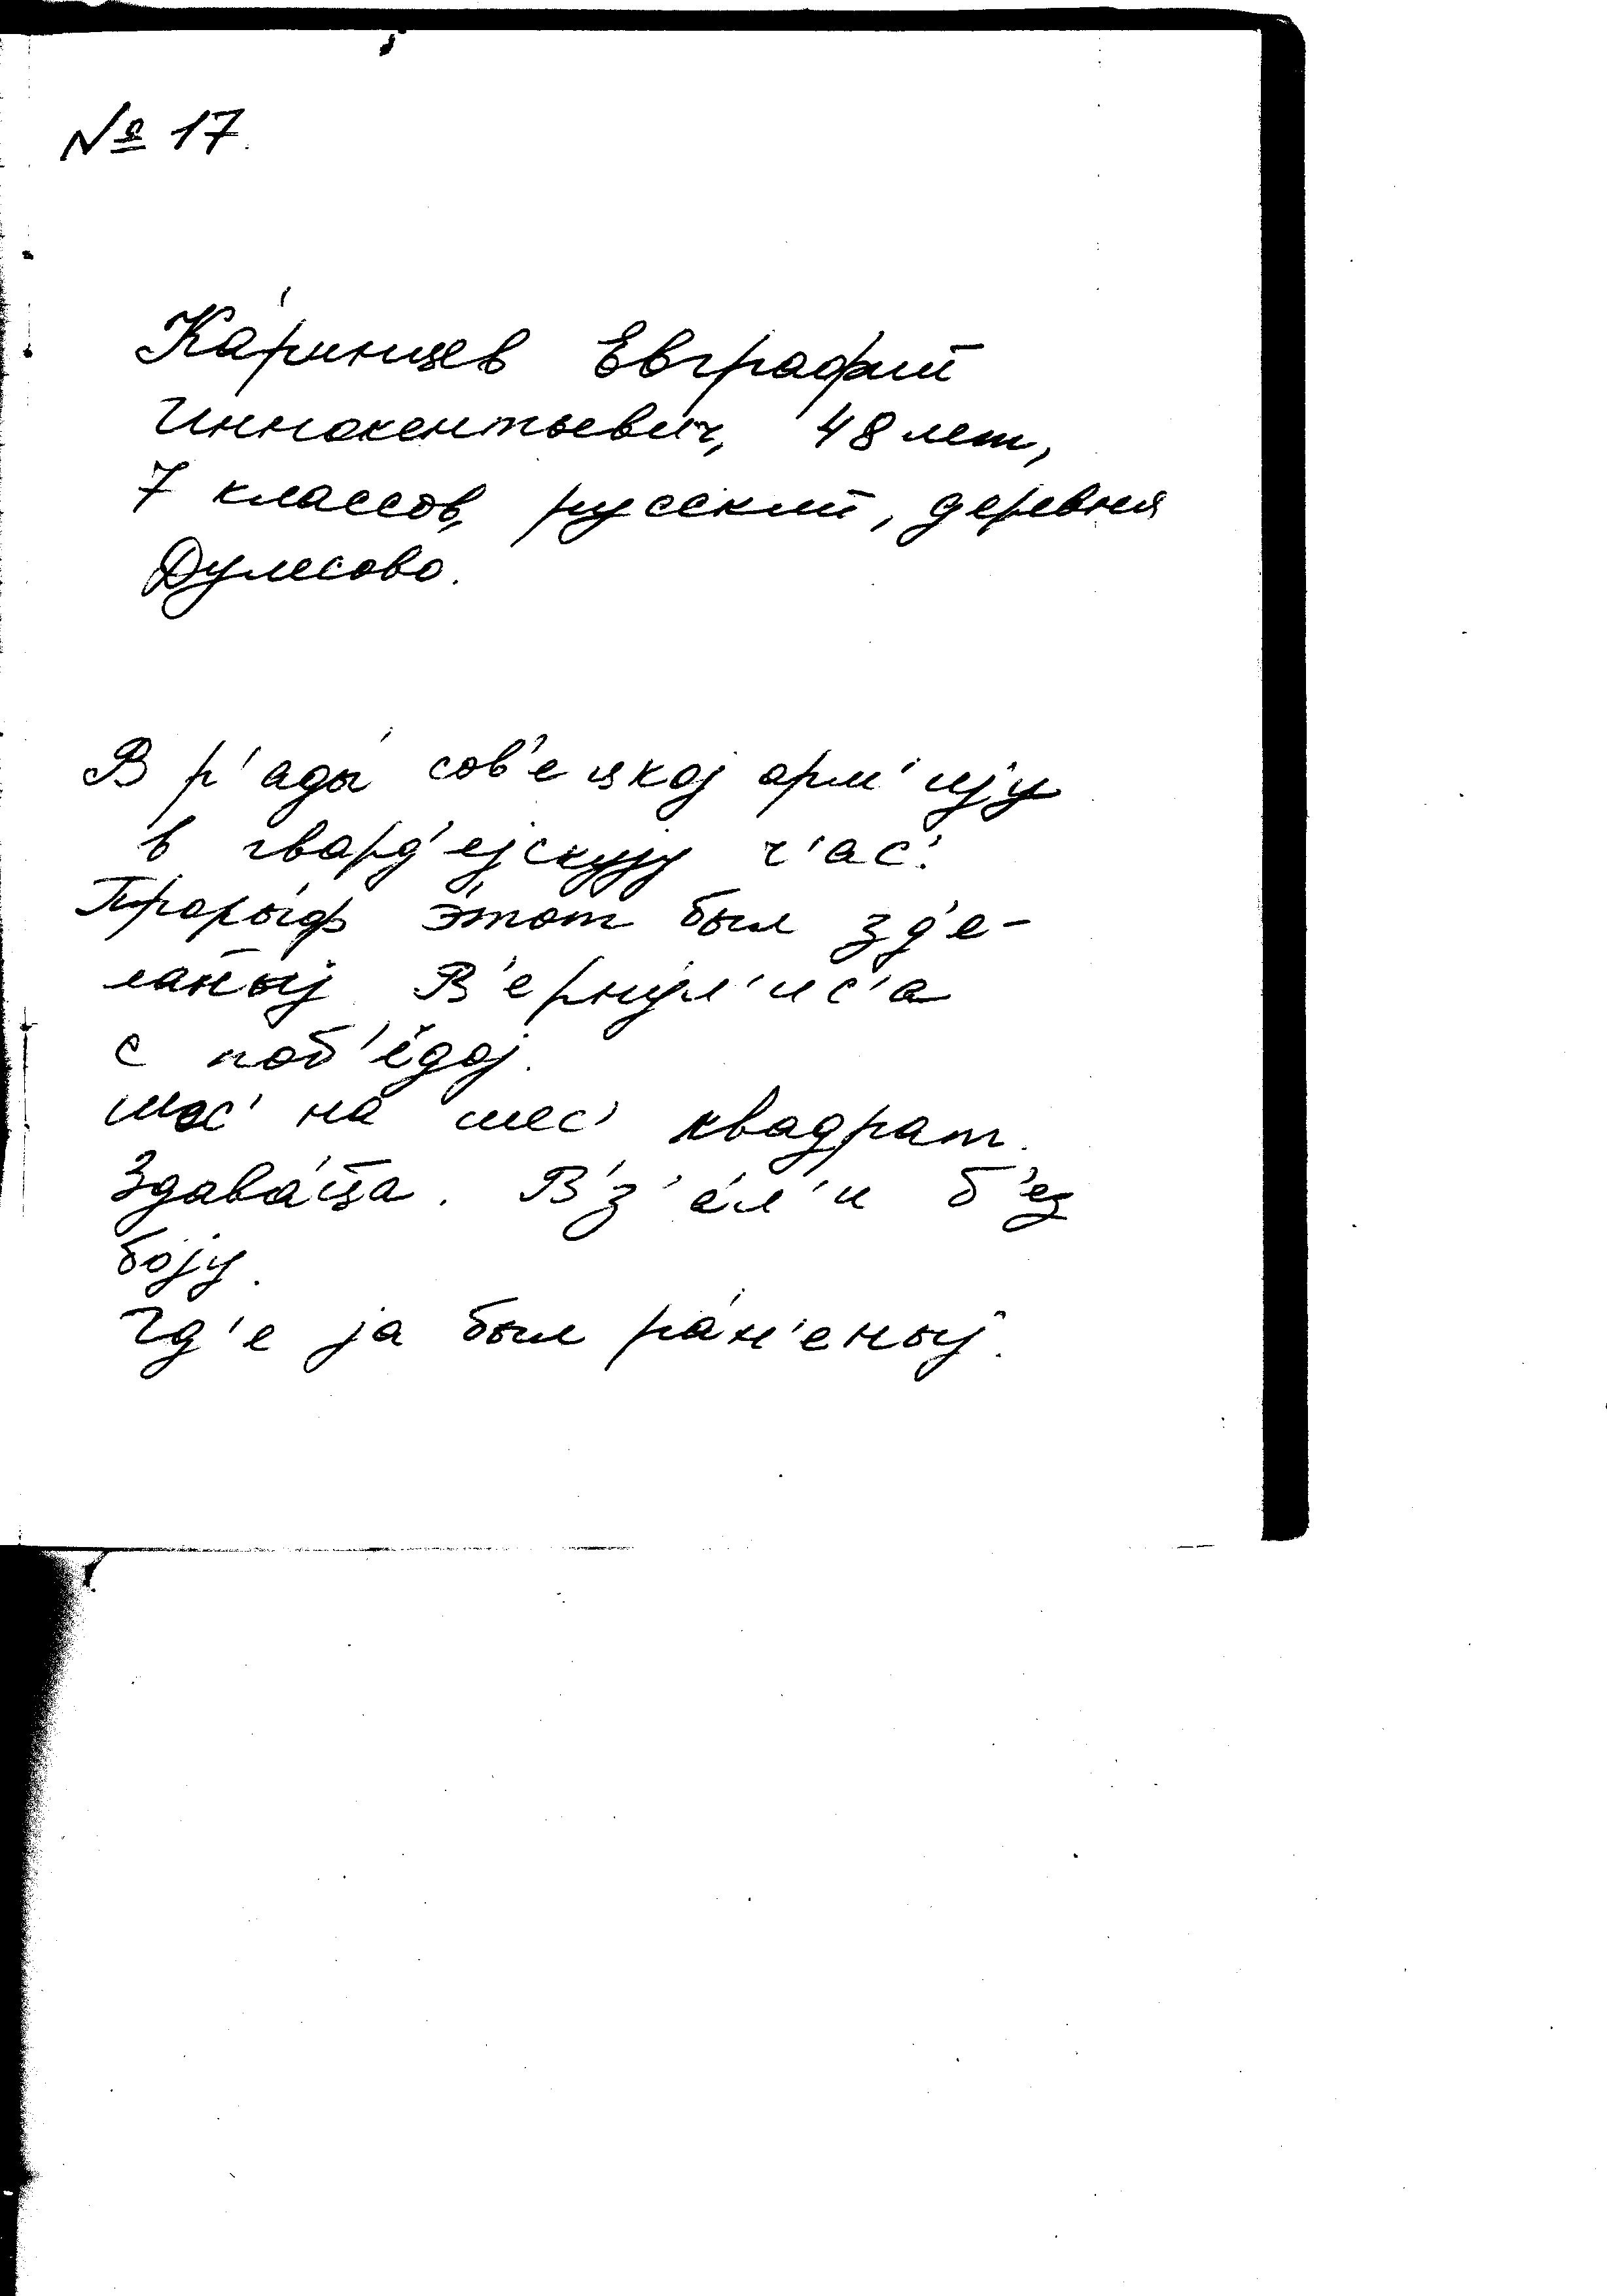 № 17.
Ка́ринцев Евграфий
Иннокентьевич, 48 лет,
7 классов, русский, деревня
Дулесово.
В р'ады́ сов'е́цкој арм'ију
в гвард'е́јскују ч'ас'.
Проры́ф э́тот был зд'е-
ланыј. В'ерну́л'ис'а
с поб'е́дој.
шес' на шес' квадрат.
Здава́ц̄а. В'з'а́л'и б'ез
боју.
Гд'е ја был ра́н'еныј.